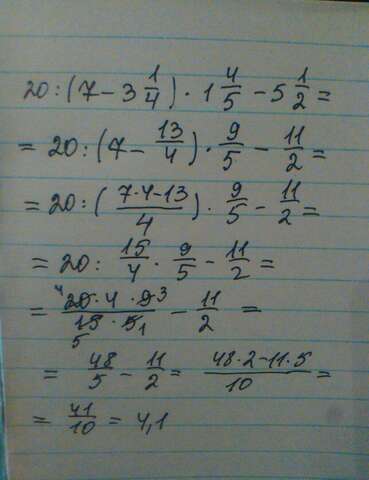 20:(7-3 1/4)·1 4/5-5 1/2=
=20:(7-13/4)·9/5-11/2=
=20:((7·4-13)/4)·9/5-11/2=
=20:15/4·9/5-11/2=
=⁴20·4·9³/15₅·5₁-11/2=
=48/5-11/2=(48·2-11·5)/10=
=41/10=4,1